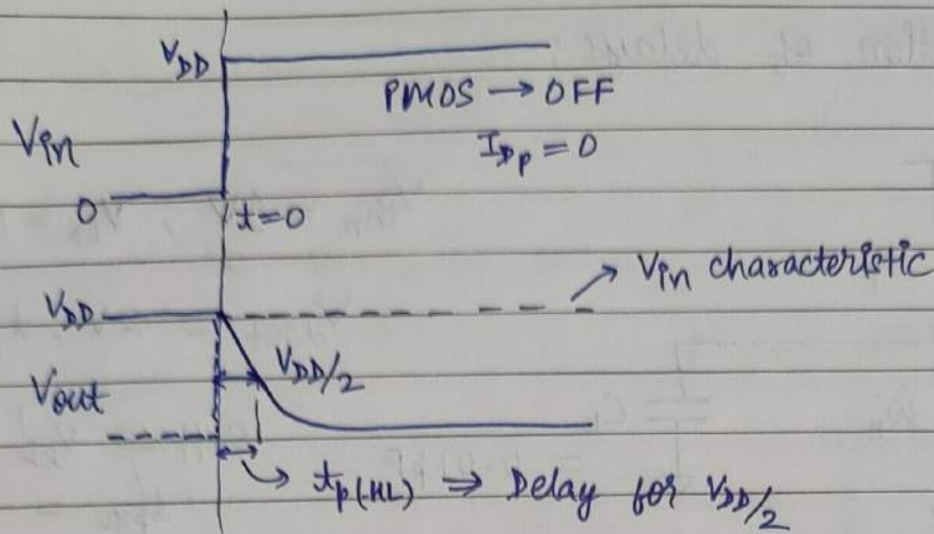 V_DD
PMOS → OFF
Vin
I_Dp = 0
0
t=0
Vin characteristic
V_DD
V_DD/2
Vout
t_p(HL) ⇒ Delay for V_DD/2